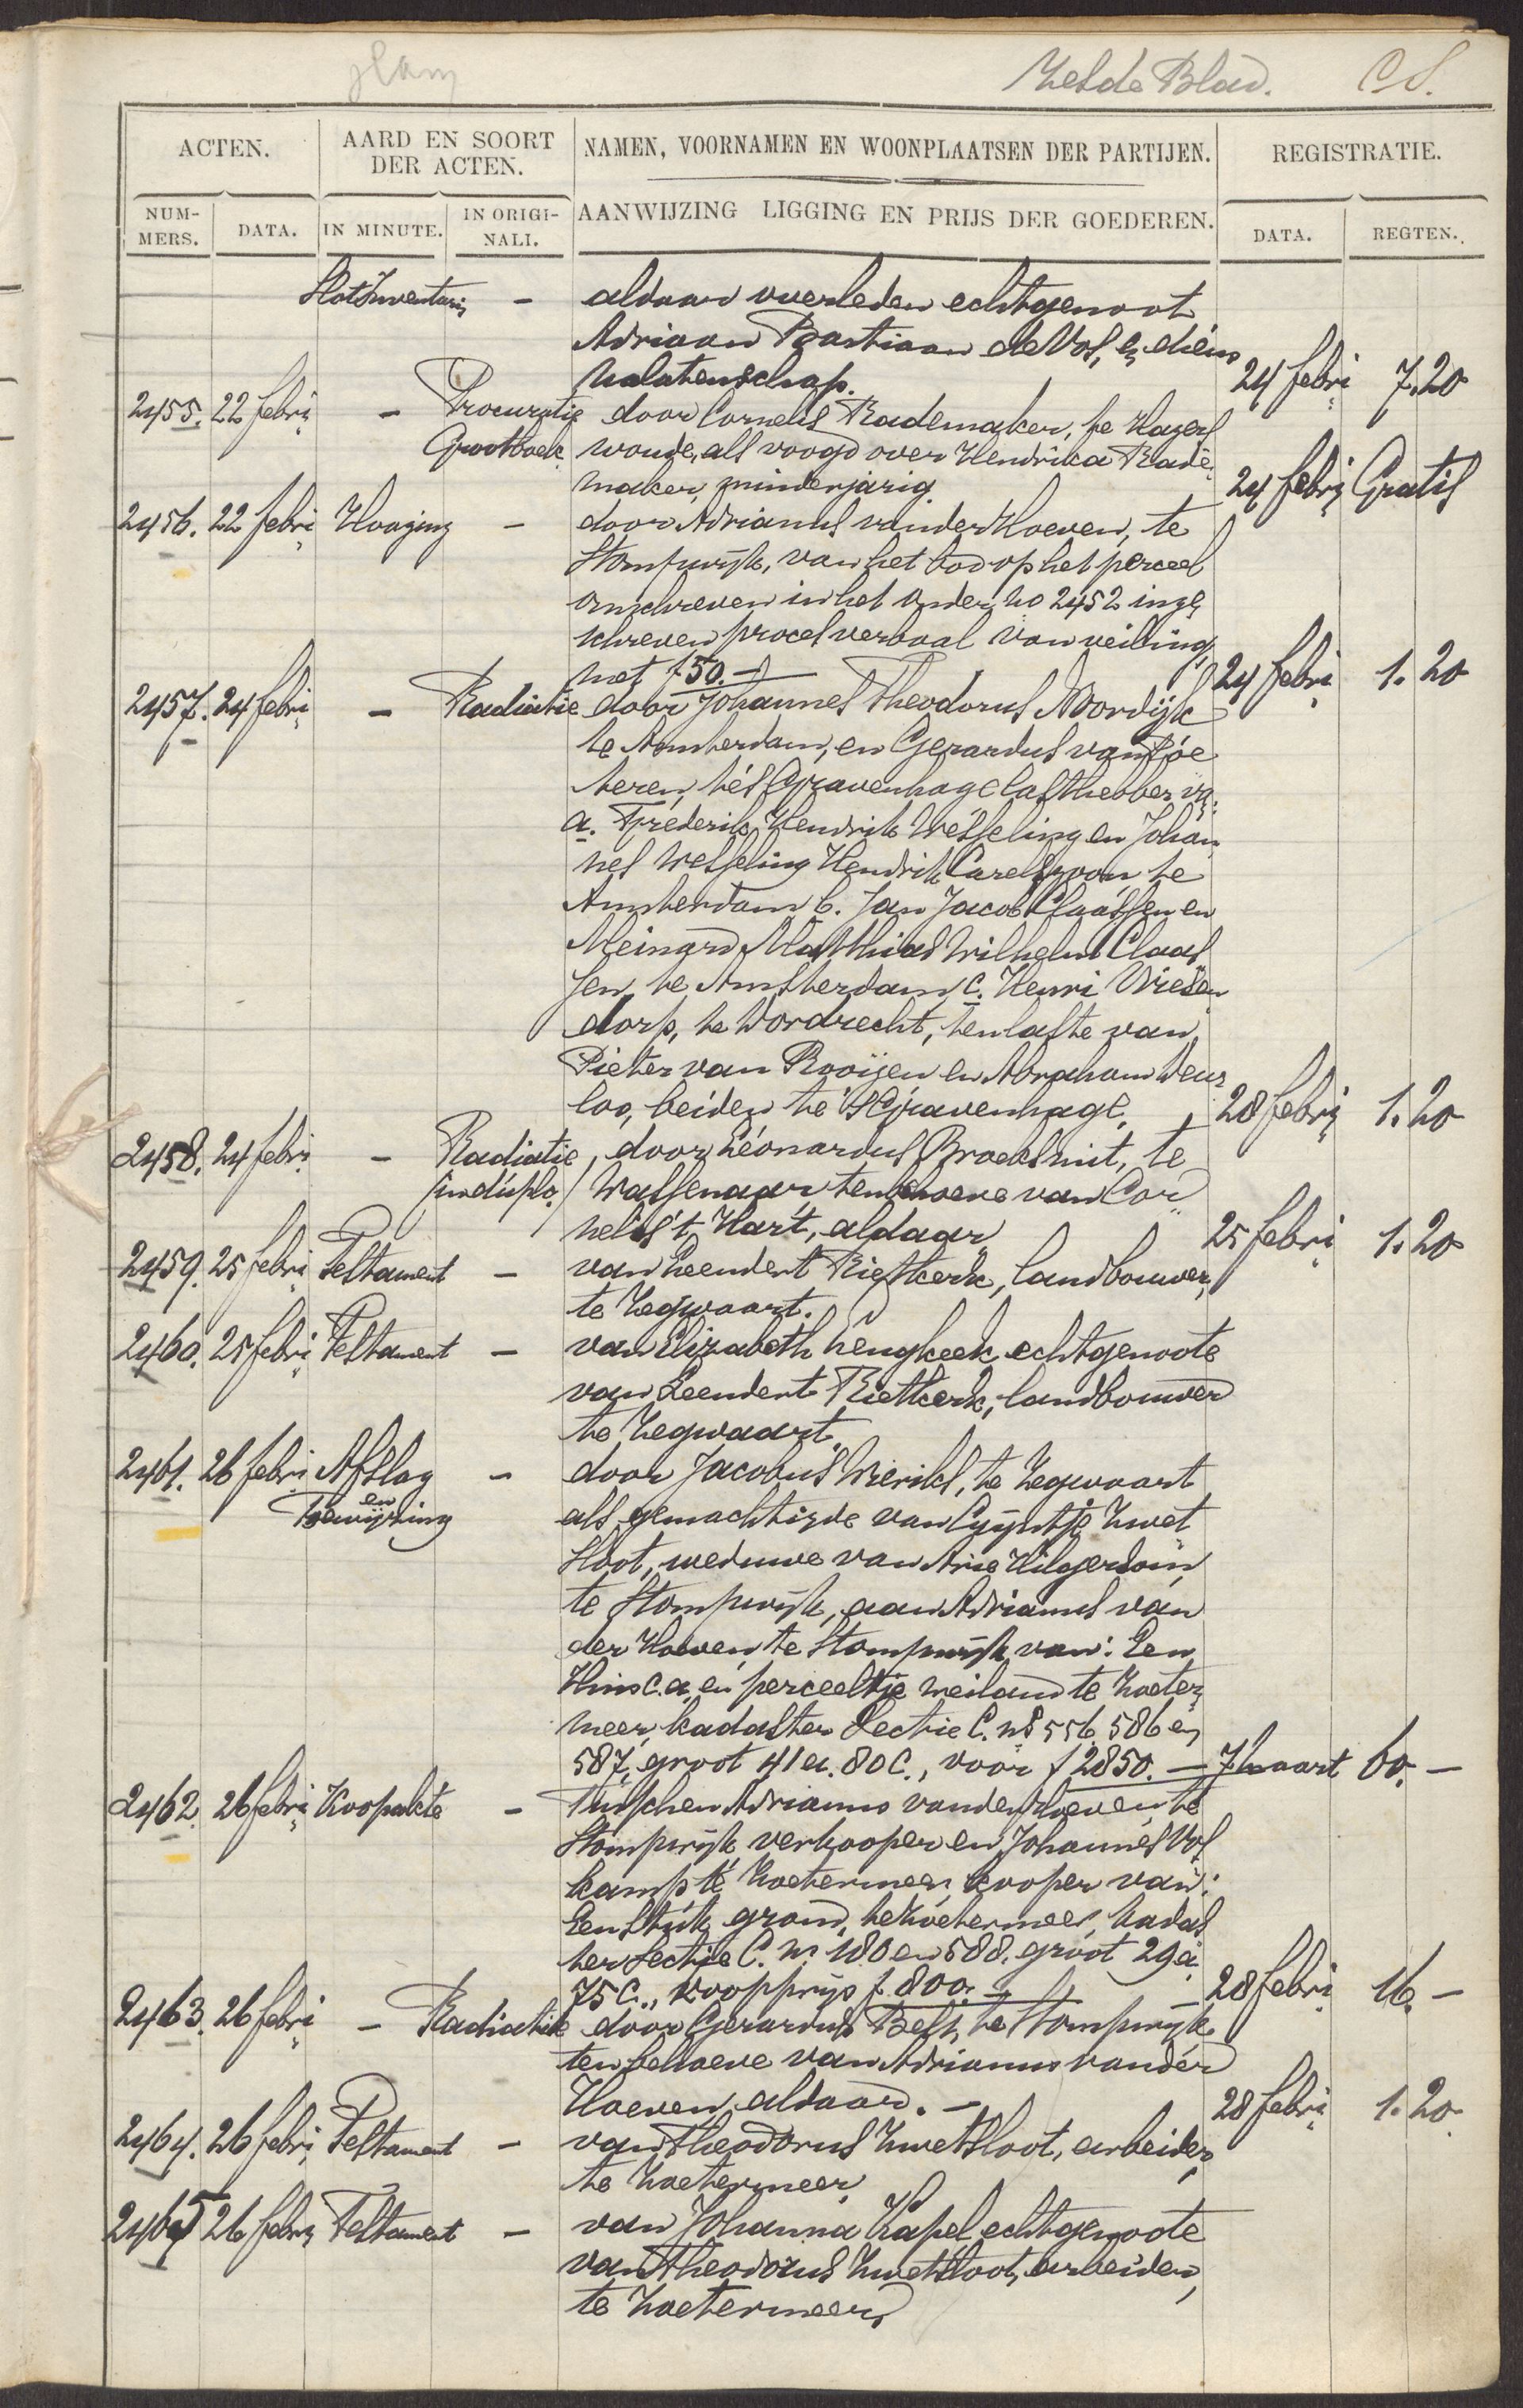 Zesde Blad. CS.
ACTEN. AARD EN SOORT DER ACTEN. NAMEN, VOORNAMEN EN WOONPLAATSEN DER PARTIJEN. REGISTRATIE.
NUMMERS. DATA. IN MINUTE. IN ORIGINALI. AANWIJZING LIGGING EN PRIJS DER GOEDEREN. DATA. REGTEN.
Slot Inventaris — aldaar overleden echtgenoot
Adriaan Bastiaan de Vos, en diens
nalatenschap. 24 febri 7.20
2455. 22 febri — Procuratie door Cornelis Rademaker, te Hazers
Grootboek woude, als voogd over Hendrika Rade
maker, minderjarig. 24 febri Gratis
2456. 22 febri Hooging — door Adrianus van der Hoeven, te
Stompwijk, van het bod op het perceel
omschreven in het onder no 2452 inge
schreven proces verbaal van veiling,
met f 50.— 24 febri 1.20
2457. 24 febri — Radiatie door Johannes Theodorus Noordijk
te Amsterdam, en Gerardus van Soe
teren, te 's Gravenhage lasthebber van
a. Frederik Hendrik Wesseling en Johan
nes Wesseling Hendrik Carelszoon te
Amsterdam b. Jan Jacob Claassen en
Meinard Matthias Wilhelm Claas
sen, te Amsterdam, c. Henri Vriesen
dorp, te Dordrecht, ten laste van
Pieter van Rooijen en Abraham Deur
loo, beiden te 's Gravenhage. 28 febri 1.20
2458. 24 febri — Radiatie, door Leonardus Broeksmit, te
/induplo./ Wassenaar, ten behoeve van Cor
nelis 't Hart, aldaar 25 febri 1.20
2459. 25 febri Testament — van Leendert Rietkerk, landbouwer,
te Zegwaart.
2460. 25 febri Testament — van Elizabeth Lengkeek echtgenoote
van Leendert Rietkerk, landbouwer
te Zegwaart.
2461. 26 febri Afslag — door Jacobus Wieriks, te Zegwaart
en
Toewijzing als gemachtigde van Cijntje Zwet
sloot, weduwe van Arie Hilgersom,
te Stompwijk, aan Adrianus van
der Hoeven, te Stompwijk, van: Een
Huis c.a. en perceeltje weiland te Zoeter
meer, kadaster Sectie C. ns 556. 586 en
587, groot 41 a. 80 c., voor f 2850.— 7 Maart 60.—
2462. 26 febri Koopakte — Tusschen Adrianus van der Hoeven, te
Stompwijk, verkooper en Johannes Vos
kamp te Zoetermeer, kooper van:
Een stuk grond, te Zoetermeer, kadas
ter Sectie C. nr 180 en 588. groot 29 a
75 c., koopprijs f. 800.— 28 febri 16.—
2463. 26 febri — Radiatie door Gerardus Bels, te Stompwijk
ten behoeve van Adrianus van der
Hoeven, aldaar.— 28 febri 1.20
2464. 26 febri Testament — van Theodorus Zwetsloot, arbeider,
te Zoetermeer,
2465 26 febri Testament — van Johanna Kapel echtgenoote
van Theodorus Zwetsloot, arbeider,
te Zoetermeer